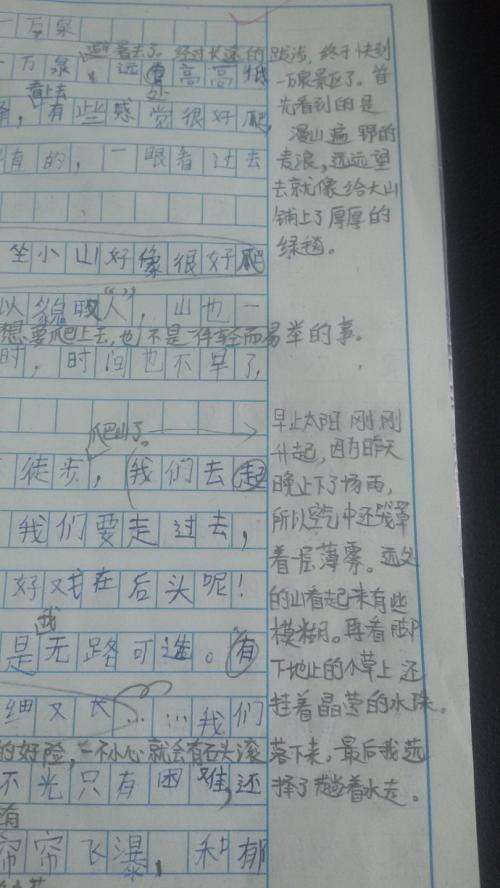 一万泉
避暑去了。经过长途的跋涉，终于快到
一万泉，远处高高低
一万泉景区了。首
看上去
先看到的是
有些感觉很好爬
漫山遍野的
有的，一眼看过去
麦浪，远远望
去就像给大山
铺上了厚厚的
绿毯。
坐小山好像很好爬
以貌取"人"，山也一
想要爬上去，也不是一件轻而易举的事。
时，时间也不早了，
爬山了。
早上太阳刚刚
徒步，我们去
升起，因为昨天
晚上下了场雨，
我们要走过去，
所以空气中还笼罩
着一层薄雾。远处
好戏在后头呢！
的山看起来有些
模糊。再看脚
是无路可选。有
下地上的小草上还
挂着晶莹的水珠。
细又长……我们
的好险，一不小心就会有石头滚落下来，最后我选
不光只有困难，还
择了趟着水走。
有
帘帘飞瀑，